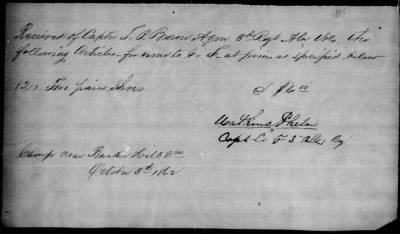 Received of Capt T. B. Brown Agm 3d Regt Ala Vols. the
following Articles for issue to Co F at prices as specified below
12/ Two pairs $6 00
Watkins Phelan
Capt Co F 3d Ala Rg
Camp near Bunker Hill Va
October 3d 1862